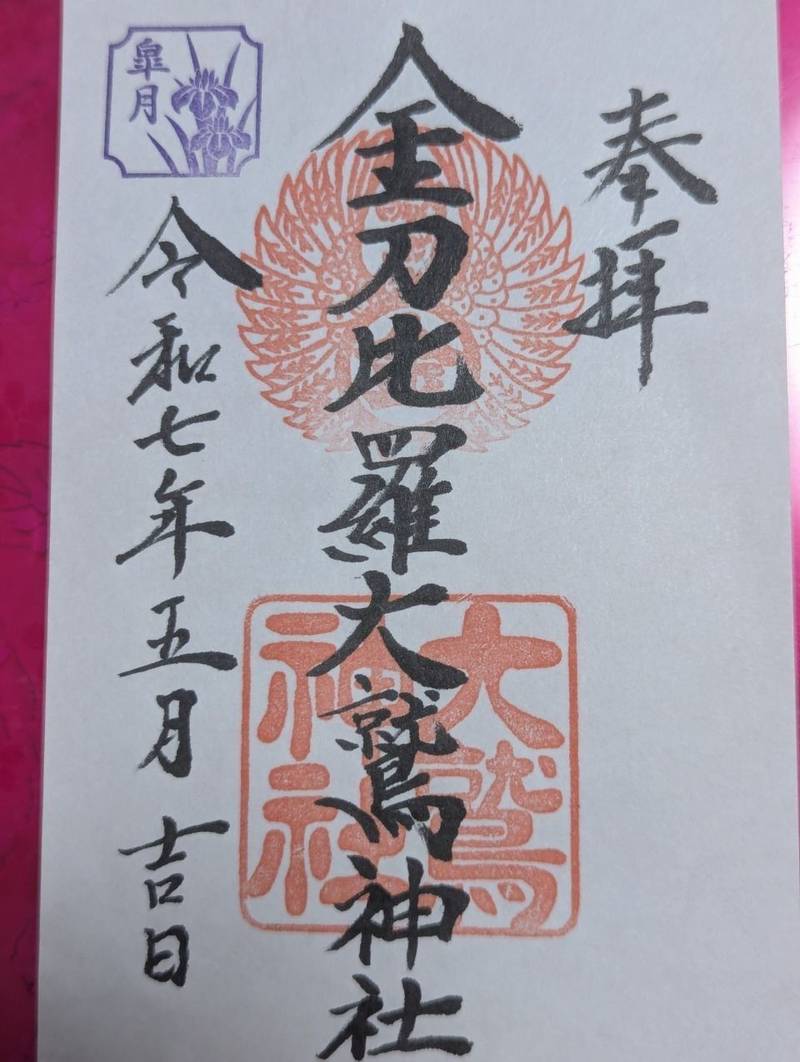 奉拝
金刀比羅大鷲神社
大鷲
神社
令和七年五月吉日
皐月